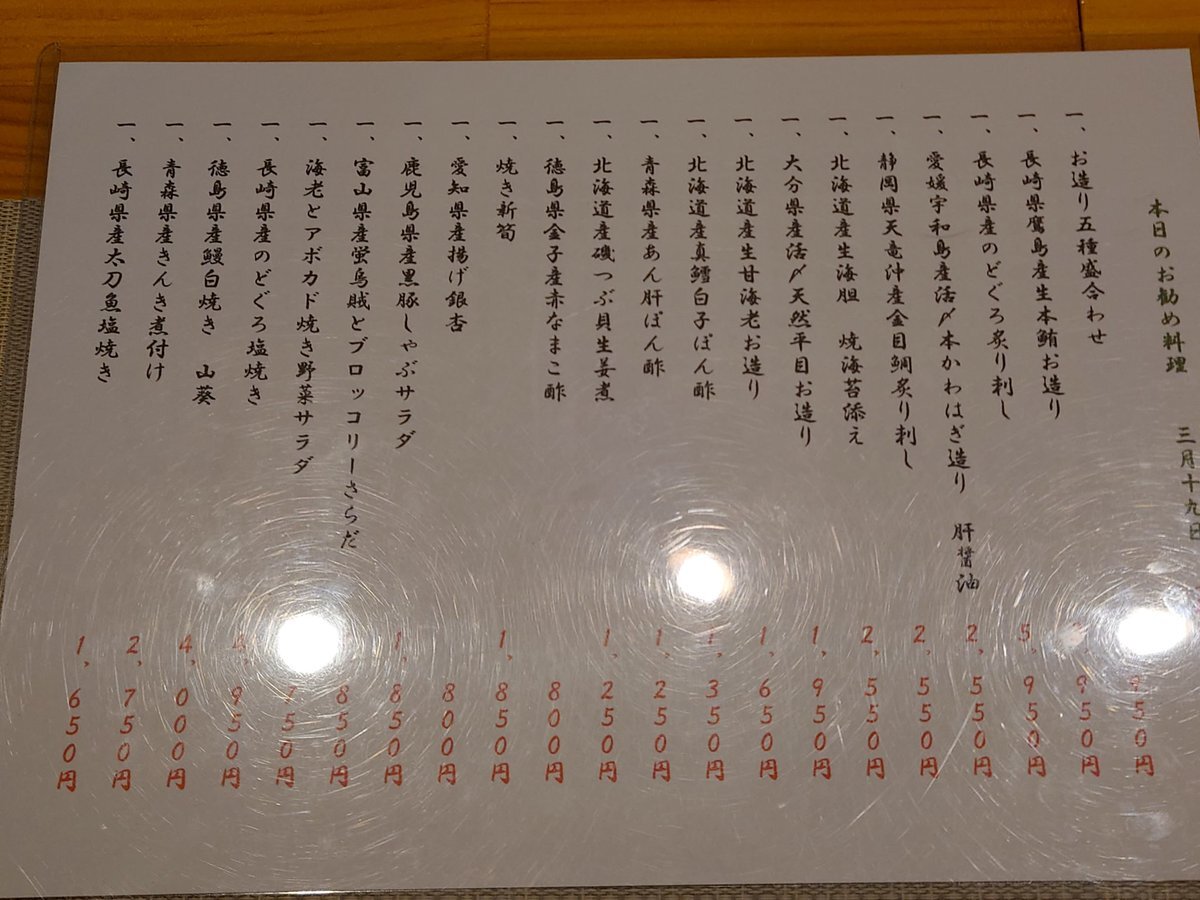 本日のお勧め料理 三月十九日
一、お造り五種盛合わせ 950円
一、長崎県鷹島産生本鮪お造り 950円
一、長崎県産のどぐろ炙り刺し 5,950円
一、愛媛宇和島産活〆本かわはぎ造り 肝醤油 2,550円
一、静岡県天竜沖産金目鯛炙り刺し 2,550円
一、北海道産生海胆 焼海苔添え 2,550円
一、大分県産活〆天然平目お造り 1,950円
一、北海道産生甘海老お造り 1,650円
一、北海道産真鱈白子ぽん酢 1,350円
一、青森県産あん肝ぽん酢 1,250円
一、北海道産磯つぶ貝生姜煮 1,250円
一、徳島県金子産赤なまこ酢 800円
一、焼き新筍 1,850円
一、愛知県産揚げ銀杏 800円
一、鹿児島県産黒豚しゃぶサラダ 1,850円
一、富山県産蛍烏賊とブロッコリーさらだ 850円
一、海老とアボカド焼き野菜サラダ 750円
一、長崎県産のどぐろ塩焼き 4,950円
一、徳島県産鰻白焼き 山葵 4,000円
一、青森県産きんき煮付け 2,750円
一、長崎県産太刀魚塩焼き 1,650円